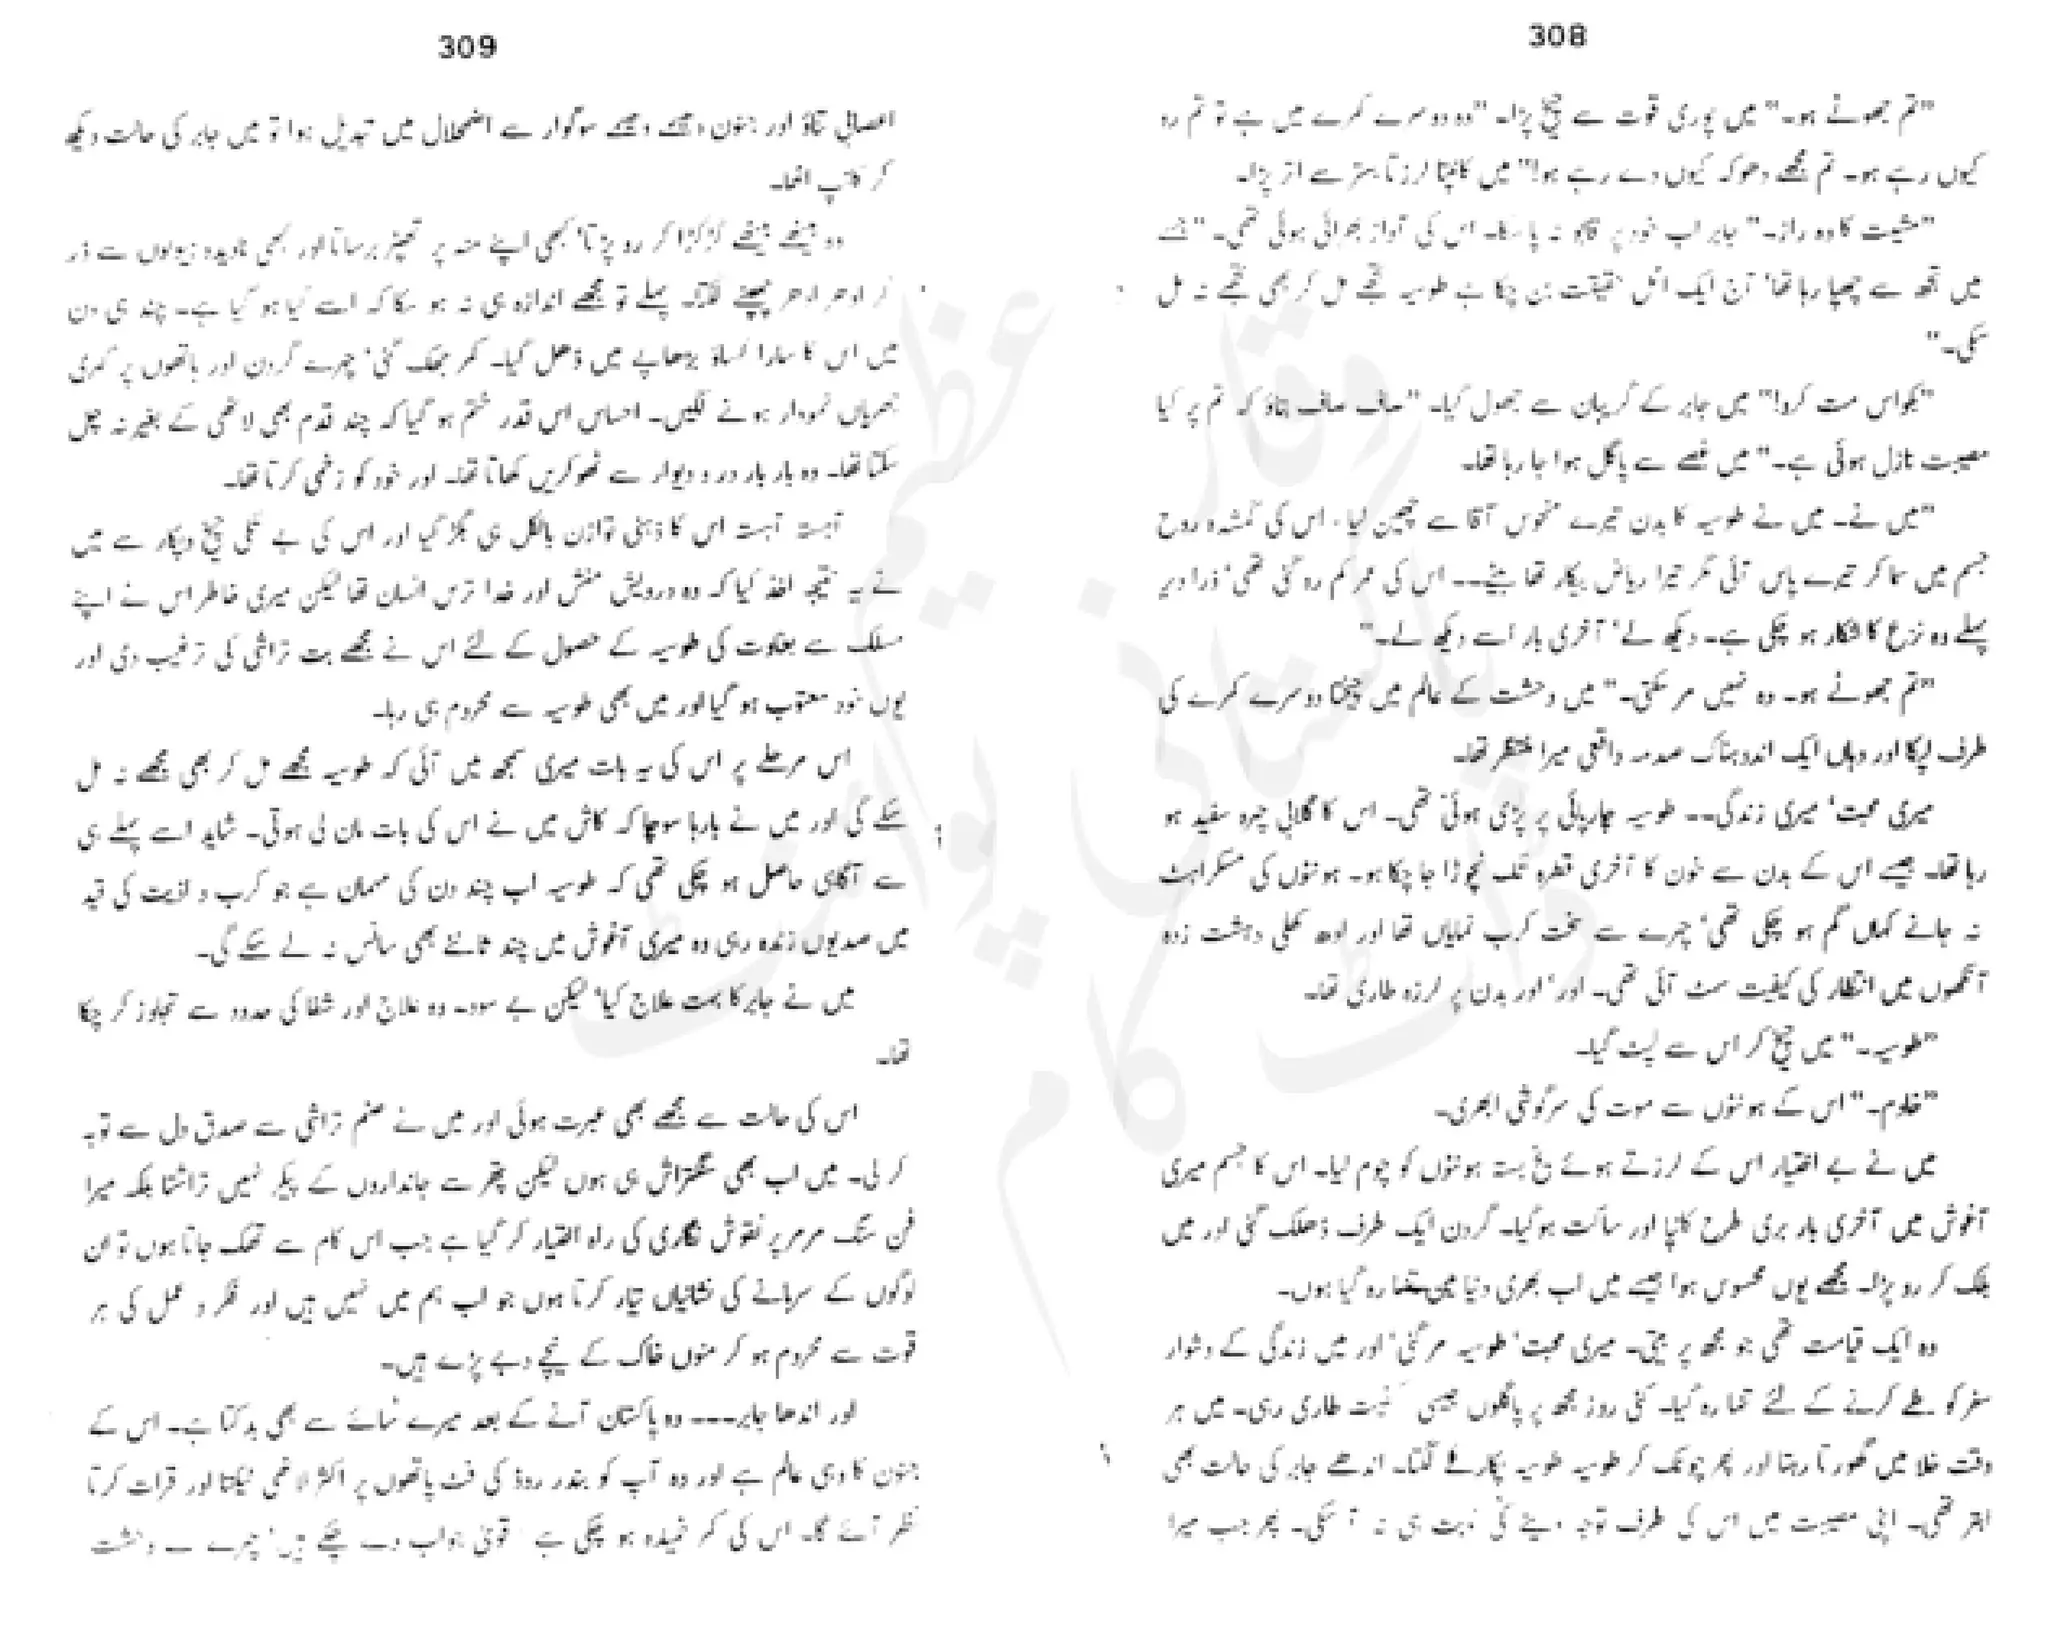 308
"تم جھوٹے ہو۔" میں پوری قوت سے چیخ پڑا۔ "وہ دوسرے کمرے میں ہے تو تم رو
کیوں رہے ہو۔ تم مجھے دھوکہ کیوں دے رہے ہو!" میں کانپتا لرزتا بستر سے اتر پڑا۔
"مشیت کا وہ راز۔" جابر اب خود پر قابو نہ پا سکا۔ اس کی آواز بھرائی ہوئی تھی۔ "جسے
میں تجھ سے چھپا رہا تھا' آج ایک اٹل حقیقت بن چکا ہے طوبیہ تجھے مل کر بھی تجھے نہ مل
سکی۔"
"بکواس مت کرو!" میں جابر کے گریبان سے جھول گیا۔ "صاف صاف بتاؤ کہ تم پر کیا
مصیبت نازل ہوئی ہے۔" میں غصے سے پاگل ہوا جا رہا تھا۔
"میں نے۔ میں نے طوبیہ کا بدن تیرے منحوس آقا سے چھین لیا۔ اس کی گمشدہ روح
جسم میں سما کر تیرے پاس آئی مگر تیرا ریاض بیکار تھا بیٹے۔۔ اس کی عمر کم رہ گئی تھی' ذرا دیر
پہلے وہ نزع کا شکار ہو چکی ہے۔ دیکھ لے' آخری بار اسے دیکھ لے۔"
"تم جھوٹے ہو۔ وہ نہیں مر سکتی۔" میں وحشت کے عالم میں چیختا دوسرے کمرے کی
طرف لپکا اور وہاں ایک اندوہناک صدمہ واقعی میرا منتظر تھا۔
میری محبت' میری زندگی۔۔ طوبیہ چارپائی پر پڑی ہوئی تھی۔ اس کا گلابی چہرہ سفید ہو
رہا تھا۔ جیسے اس کے بدن سے خون کا آخری قطرہ تک نچوڑا جا چکا ہو۔ ہونٹوں کی مسکراہٹ
نہ جانے کہاں گم ہو چکی تھی' چہرے سے سخت کرب نمایاں تھا اور ادھ کھلی دہشت زدہ
آنکھوں میں انتظار کی کیفیت سمٹ آئی تھی۔ اور' اور بدن پر لرزہ طاری تھا۔
"طوبیہ۔" میں چیخ کر اس سے لپٹ گیا۔
"خادم۔" اس کے ہونٹوں سے موت کی سرگوشی ابھری۔
میں نے بے اختیار اس کے لرزتے ہوئے یخ بستہ ہونٹوں کو چوم لیا۔ اس کا جسم میری
آغوش میں آخری بار بری طرح کانپا اور ساکت ہوگیا۔ گردن ایک طرف ڈھلک گئی اور میں
بلک کر رو پڑا۔ مجھے یوں محسوس ہوا جیسے میں اب بھری دنیا میں تنہا رہ گیا ہوں۔
وہ ایک قیامت تھی جو مجھ پر بیتی۔ میری محبت' طوبیہ مر گئی' اور میں زندگی کے دشوار
سفر کو طے کرنے کے لئے تنہا رہ گیا۔ کئی روز مجھ پر پاگلوں جیسی کیفیت طاری رہی۔ میں ہر
وقت خلا میں گھورتا رہتا اور پھر چونک کر طوبیہ طوبیہ پکارنے لگتا۔ اندھے جابر کی حالت بھی
ابتر تھی۔ اپنی مصیبت میں اس کی طرف توجہ دینے کی نوبت ہی نہ آ سکی۔ پھر جب میرا
309
اعصابی تناؤ اور جنون دھیمے دھیمے سوگوار سے اضمحلال میں تبدیل ہوا تو میں جابر کی حالت دیکھ
کر کانپ اٹھا۔
وہ بیٹھے بیٹھے گڑگڑا کر رو پڑتا' کبھی اپنے منہ پر تھپڑ برساتا اور کبھی نادیدہ ہیولوں سے ڈر
کر ادھر ادھر چھپنے لگتا۔ پہلے تو مجھے اندازہ ہی نہ ہو سکا کہ اسے کیا ہو گیا ہے۔ چند ہی دن
میں اس کا سارا کساؤ بڑھاپے میں ڈھل گیا۔ کمر جھک گئی' چہرے گردن اور ہاتھوں پر گہری
جھریاں نمودار ہونے لگیں۔ احساس اس قدر ختم ہو گیا کہ چند قدم بھی لاٹھی کے بغیر نہ چل
سکتا تھا۔ وہ بار بار در و دیوار سے ٹھوکریں کھاتا تھا۔ اور خود کو زخمی کرتا تھا۔
آہستہ آہستہ اس کا ذہنی توازن بالکل ہی بگڑ گیا اور اس کی بے تکی چیخ و پکار سے میں
نے یہ نتیجہ اخذ کیا کہ وہ درویش منش اور خدا ترس انسان تھا لیکن میری خاطر اس نے اپنے
مسلک سے بغاوت کی طوبیہ کے حصول کے لئے اس نے مجھے بت تراشی کی ترغیب دی اور
یوں خود معتوب ہو گیا اور میں بھی طوبیہ سے محروم ہی رہا۔
اس مرحلے پر اس کی یہ بات میری سمجھ میں آئی کہ طوبیہ مجھے مل کر بھی مجھے نہ مل
سکے گی اور میں نے بارہا سوچا کہ کاش میں نے اس کی بات مان لی ہوتی۔ شاید اسے پہلے ہی
سے آگاہی حاصل ہو چکی تھی کہ طوبیہ اب چند دن کی مہمان ہے جو کرب و اذیت کی قید
میں صدیوں زندہ رہی وہ میری آغوش میں چند ثانئے بھی سانس نہ لے سکے گی۔
میں نے جابر کا بہت علاج کیا' لیکن بے سود۔ وہ علاج اور شفا کی حدود سے تجاوز کر چکا
تھا۔
اس کی حالت سے مجھے بھی عبرت ہوئی اور میں نے صنم تراشی سے صدق دل سے توبہ
کر لی۔ میں اب بھی سنگتراش ہی ہوں لیکن پتھر سے جانداروں کے پیکر نہیں تراشتا بلکہ میرا
فن سنگ مرمر پر نقوش نگاری کی راہ اختیار کر گیا ہے جب اس کام سے تھک جاتا ہوں تو ان
لوگوں کے سرہانے کی نشانیاں تیار کرتا ہوں جو اب ہم میں نہیں ہیں اور فکر و عمل کی ہر
قوت سے محروم ہو کر منوں خاک کے نیچے دبے پڑے ہیں۔
اور اندھا جابر۔۔۔ وہ پاکستان آنے کے بعد میرے سائے سے بھی بدکتا ہے۔ اس کے
جنون کا وہی عالم ہے اور وہ آپ کو بندر روڈ کی فٹ پاتھوں پر اکثر لاٹھی ٹیکتا اور قرات کرتا
نظر آئے گا۔ اس کی کمر خمیدہ ہو چکی ہے قویٰ جواب دے چکے ہیں' چہرے سے وحشت
وقار عظیم
پاکستانی پوائنٹ
ڈاٹ کام